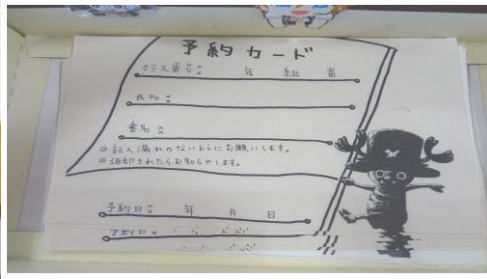 予約カード
クラス番号: 年 組 番
氏名:
書名:
◎記入漏れのないようにお願いします。
◎返却されたらお知らせします。
予約日: 年 月 日
予約日: